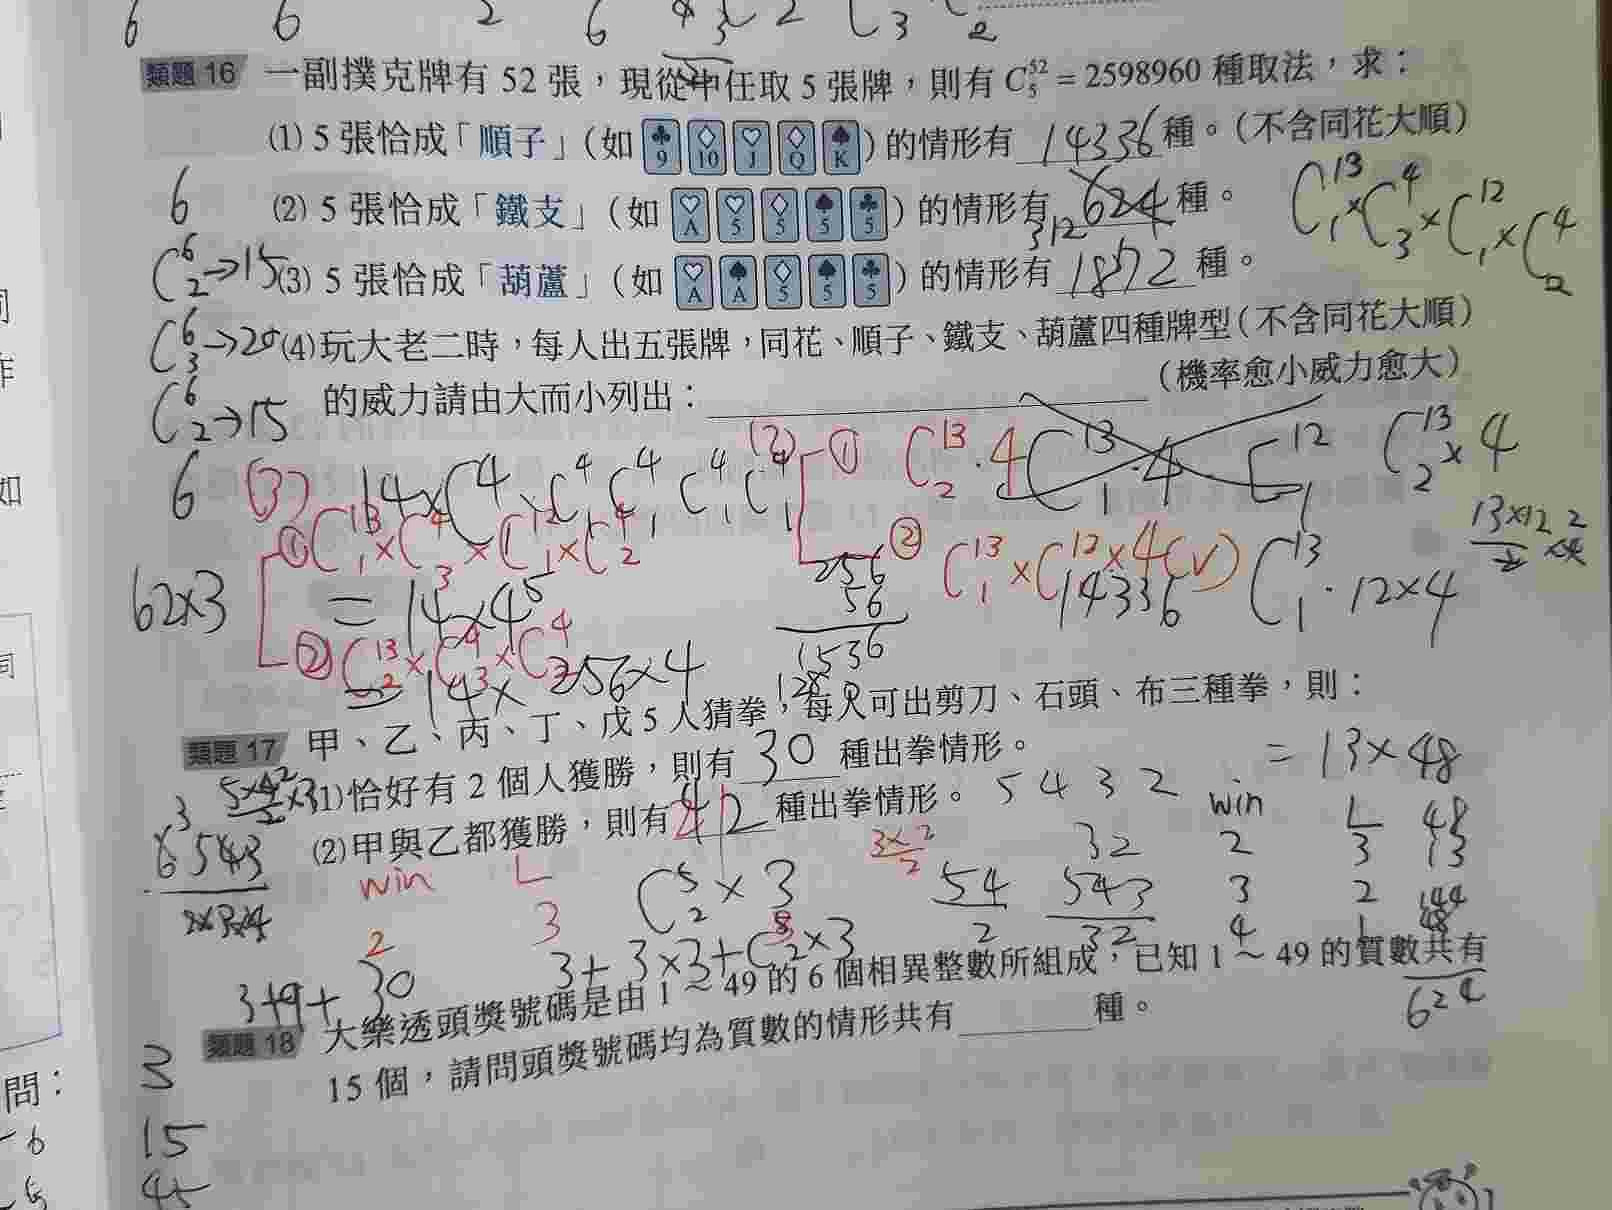 6 6 2 6
類題 16 一副撲克牌有 52 張，現從中任取 5 張牌，則有 C₅⁵² = 2598960 種取法，求：
(1) 5 張恰成「順子」（如 ♣9 ♢10 ♡J ♢Q ♠K）的情形有 14336 種。（不含同花大順）
6 (2) 5 張恰成「鐵支」（如 ♡A ♡5 ♢5 ♠5 ♣5）的情形有 624 種。 C₁¹³×C₃⁴×C₁¹²×C₂⁴
312
C₂⁶→15 (3) 5 張恰成「葫蘆」（如 ♡A ♠A ♢5 ♠5 ♣5）的情形有 1872 種。
C₃⁶→20 (4)玩大老二時，每人出五張牌，同花、順子、鐵支、葫蘆四種牌型（不含同花大順）
C₂⁶→15 的威力請由大而小列出：（機率愈小威力愈大）
6 (3) 14×C₁⁴ C₁⁴ C₁⁴ C₁⁴ (2) ① C₂¹³·4 C₁¹³·4 C₁¹² C₂¹³×4
① C₁¹³×C₃⁴×C₁¹²×C₂⁴ ② C₁¹³×C₁¹²×4(v) C₁¹³·12×4
62×3 = 14×4⁵ 256 56 14336
② C₂¹³×C₃⁴×C₂⁴ 1536
= 14× 256×4 128
類題 17 甲、乙、丙、丁、戊 5 人猜拳，每人可出剪刀、石頭、布三種拳，則：
(1)恰好有 2 個人獲勝，則有 30 種出拳情形。 = 13×48
(2)甲與乙都獲勝，則有 42 種出拳情形。 5 4 3 2 win L 48
6543 win L C₂⁵×3 54 543 32 2 3 13
2 3 2 32 3 2 144
3+9+30 3+3×3+C₂ ×3 4 1 48
類題 18 大樂透頭獎號碼是由 1～49 的 6 個相異整數所組成，已知 1～49 的質數共有
624
15 個，請問頭獎號碼均為質數的情形共有 種。
3
15
45
問：